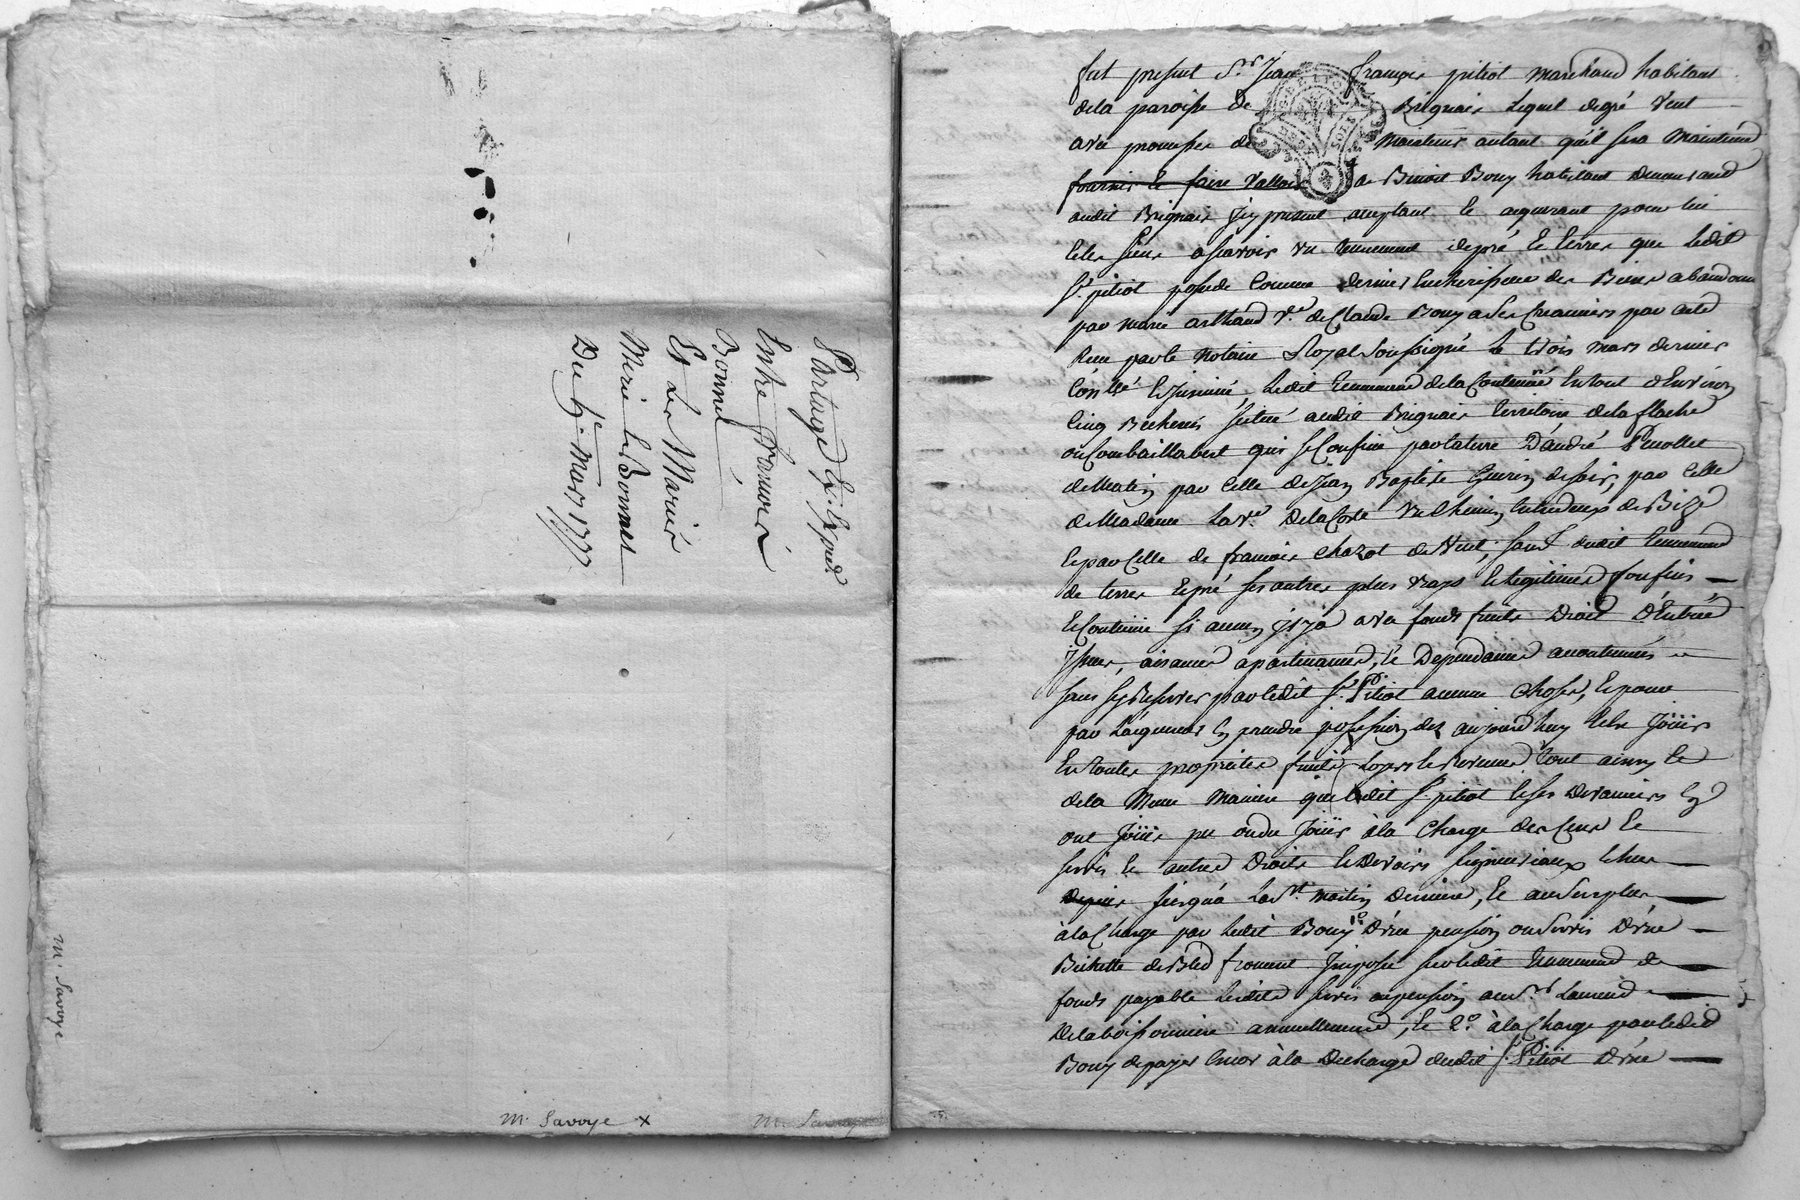 Partage Et
Entre Francois
Bonnet
Et Les Mariés
Mure & Bonnet
Du 6e. Mars 1777
M. Savoye
M. Savoye x
M. Savoye
fut present Sr. Jean françois pitiot marchand habitant
de la paroisse de Brignais lequel de gré vend
avec promesse de maintenir autant qu'il sera maintenu
fournir et faire valloir a Benoit Bouy habitant demeurant
audit Brignais icy present acceptant et acquerant pour lui
et les siens a scavoir un tennement de pré et terre que ledit
Sr. pitiot possede comme dernier encherisseur des Biens abandonnés
par marie arthaud ve. de Claude Bouy a ses creanciers par acte
Receu par le Notaire Royal soussigné le trois mars dernier
Contlé Et insinué, ledit tennement de la Contenüe en tout d'Environ
cinq Bicherés situé audit Brignais territoire de la flache
ou Combaillabert qui se Confine par la terre D'andré
de matin par celle de Jean Baptiste de soir, par celle
de Madame la ve. Delacoste un chemin entredeux de Bize
et par celle de francois Chazot de Vent, sauf dudit tennement
de terre et pré ses autres plus vrays et legitimes Confins
et Contenüe si aucun j'y a avec fonds fruits Droit D'Entrée
issue, aisance apartenances, et Dependances accoutumés
sans sy Reserver par ledit Sr. Pitiot aucune chose, et pour
par l'acquereur En prendre possession dez aujourd'huy et en Joüir
En toutes proprietés fruits et Revenus tout ainsy et
de la Meme maniere que ledit Sr. pitiot et ses devanciers En
ont Joüi pu ou du Joüir à la Charge des Cens et
servis et autres Droits et Devoirs seigneuriaux
depuis jusqu'à la St. martin derniere, et au surplus
à la Charge par ledit Bouy 1o. D'une pension ou servis D'une
Bichette de Bled froment Imposé sur ledit tennement de
fonds payable ledit servis ou pension au Sr. Laurend
Delaboissonniere annuellement, et 2o. à la Charge par ledit
Bouy de payer encor à la decharge dudit Sr. Pitiot D'une